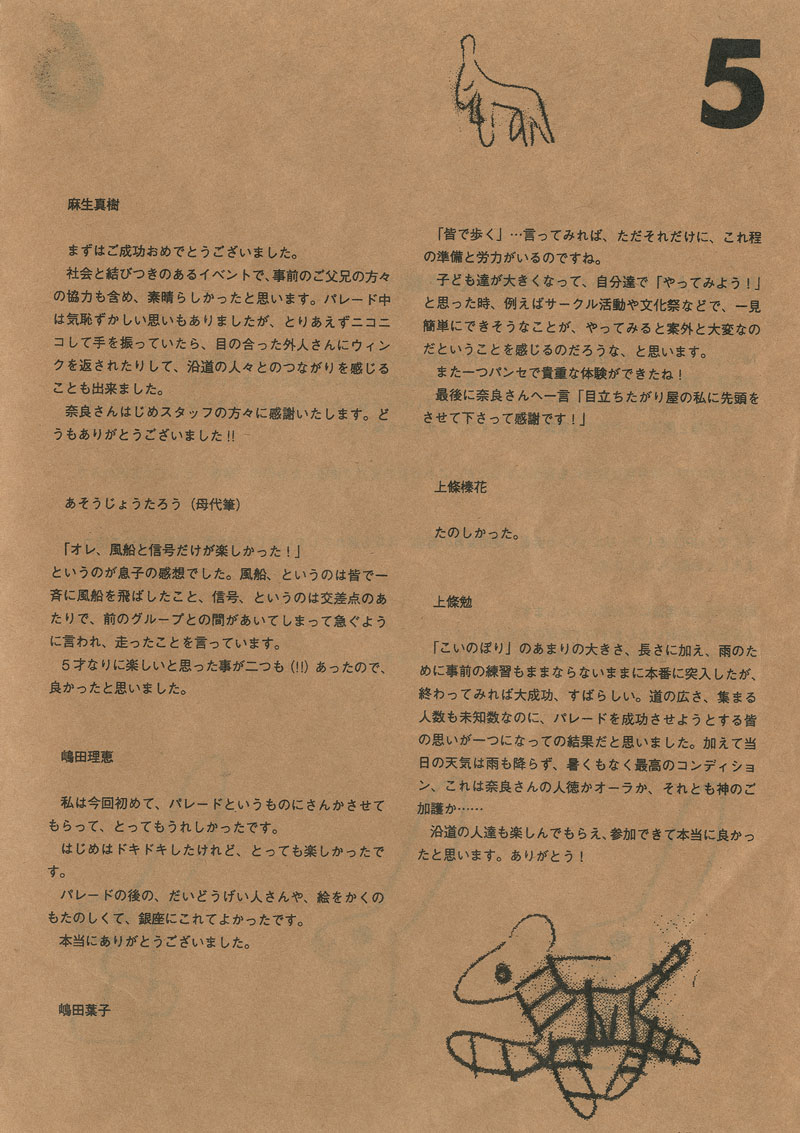 5
麻生真樹
まずはご成功おめでとうございました。
社会と結びつきのあるイベントで、事前のご父兄の方々
の協力も含め、素晴らしかったと思います。パレード中
は気恥ずかしい思いもありましたが、とりあえずニコニ
コして手を振っていたら、目の合った外人さんにウィン
クを返されたりして、沿道の人々とのつながりを感じる
ことも出来ました。
奈良さんはじめスタッフの方々に感謝いたします。ど
うもありがとうございました!!
あそうじょうたろう（母代筆）
「オレ、風船と信号だけが楽しかった！」
というのが息子の感想でした。風船、というのは皆で一
斉に風船を飛ばしたこと、信号、というのは交差点のあ
たりで、前のグループとの間があいてしまって急ぐよう
に言われ、走ったことを言っています。
５才なりに楽しいと思った事が二つも(!!)あったので、
良かったと思いました。
嶋田理恵
私は今回初めて、パレードというものにさんかさせて
もらって、とってもうれしかったです。
はじめはドキドキしたけれど、とっても楽しかったで
す。
パレードの後の、だいどうげい人さんや、絵をかくの
もたのしくて、銀座にこれてよかったです。
本当にありがとうございました。
嶋田葉子
「皆で歩く」…言ってみれば、ただそれだけに、これ程
の準備と労力がいるのですね。
子ども達が大きくなって、自分達で「やってみよう！」
と思った時、例えばサークル活動や文化祭などで、一見
簡単にできそうなことが、やってみると案外と大変なの
だということを感じるのだろうな、と思います。
また一つパンセで貴重な体験ができたね！
最後に奈良さんへ一言「目立ちたがり屋の私に先頭を
させて下さって感謝です！」
上條榛花
たのしかった。
上條勉
「こいのぼり」のあまりの大きさ、長さに加え、雨のた
めに事前の練習もままならないままに本番に突入したが、
終わってみれば大成功、すばらしい。道の広さ、集まる
人数も未知数なのに、パレードを成功させようとする皆
の思いが一つになっての結果だと思いました。加えて当
日の天気は雨も降らず、暑くもなく最高のコンディショ
ン、これは奈良さんの人徳かオーラか、それとも神のご
加護か……
沿道の人達も楽しんでもらえ、参加できて本当に良かっ
たと思います。ありがとう！